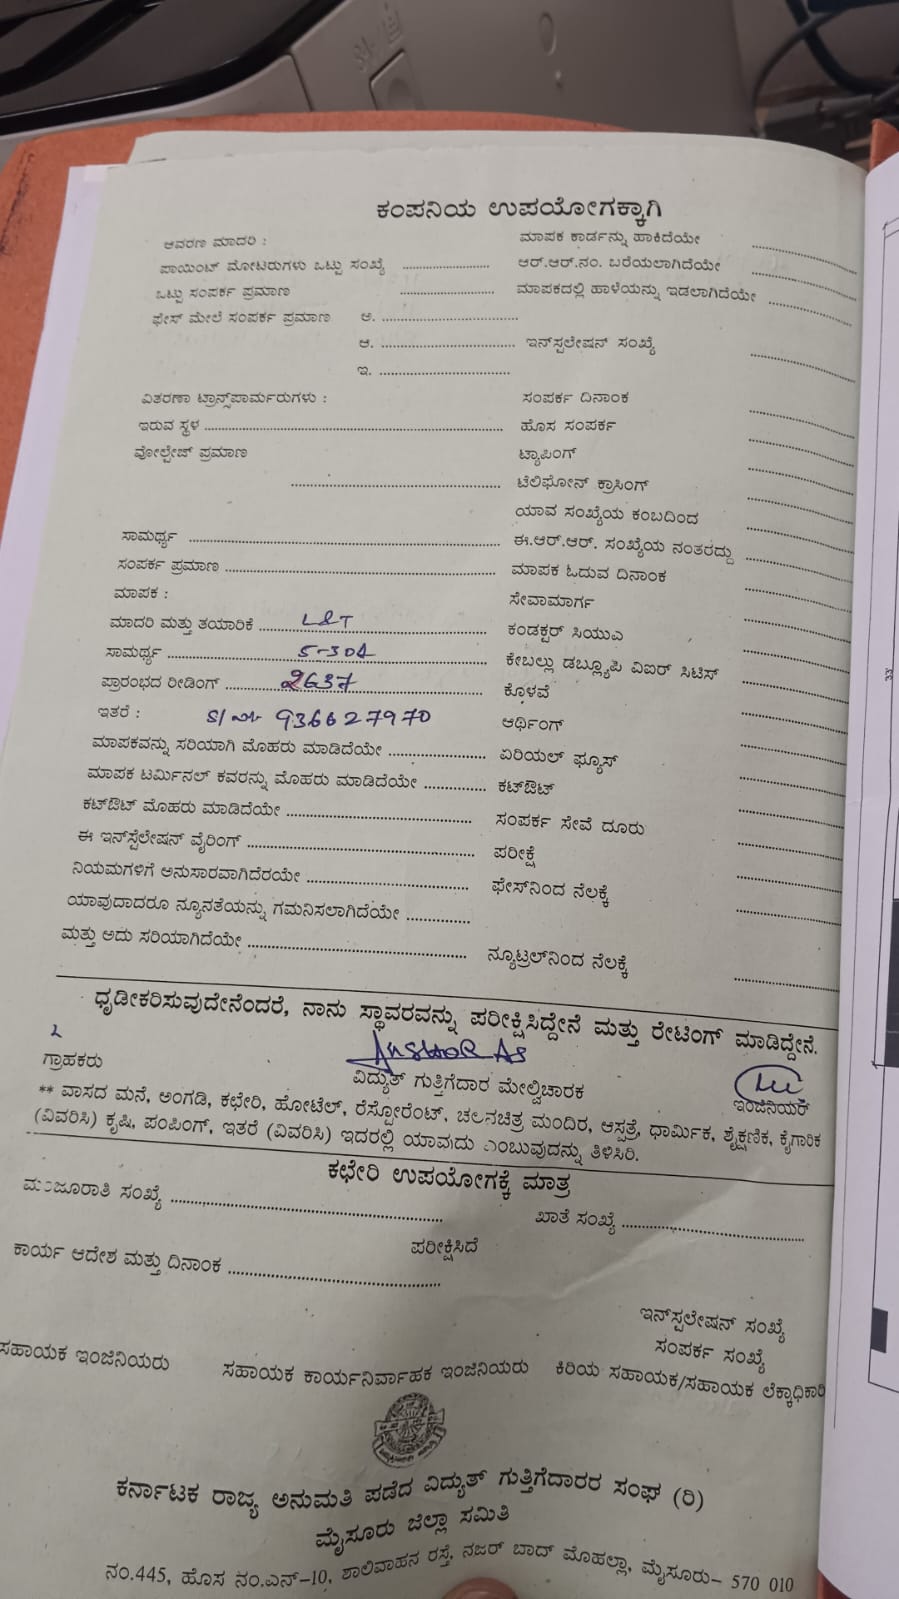 ಕಂಪನಿಯ ಉಪಯೋಗಕ್ಕಾಗಿ
ಆವರಣ ಮಾದರಿ : ಮಾಪಕ ಕಾರ್ಡನ್ನು ಹಾಕಿದೆಯೇ ....................
ಪಾಯಿಂಟ್ ಮೋಟರುಗಳು ಒಟ್ಟು ಸಂಖ್ಯೆ .................... ಆರ್.ಆರ್.ನಂ. ಬರೆಯಲಾಗಿದೆಯೇ ....................
ಒಟ್ಟು ಸಂಪರ್ಕ ಪ್ರಮಾಣ .................... ಮಾಪಕದಲ್ಲಿ ಹಾಳೆಯನ್ನು ಇಡಲಾಗಿದೆಯೇ ....................
ಫೇಸ್ ಮೇಲೆ ಸಂಪರ್ಕ ಪ್ರಮಾಣ ಅ. ....................
ಆ. .................... ಇನ್‌ಸ್ಪಲೇಷನ್ ಸಂಖ್ಯೆ ....................
ಇ. ....................
ವಿತರಣಾ ಟ್ರಾನ್ಸ್‌ಪಾರ್ಮರುಗಳು : ಸಂಪರ್ಕ ದಿನಾಂಕ ....................
ಇರುವ ಸ್ಥಳ .................... ಹೊಸ ಸಂಪರ್ಕ ....................
ವೋಲ್ಟೇಜ್ ಪ್ರಮಾಣ ಟ್ಯಾಪಿಂಗ್ ....................
.................... ಟೆಲಿಫೋನ್ ಕ್ರಾಸಿಂಗ್ ....................
ಯಾವ ಸಂಖ್ಯೆಯ ಕಂಬದಿಂದ ....................
ಸಾಮರ್ಥ್ಯ .................... ಈ.ಆರ್.ಆರ್. ಸಂಖ್ಯೆಯ ನಂತರದ್ದು ....................
ಸಂಪರ್ಕ ಪ್ರಮಾಣ .................... ಮಾಪಕ ಓದುವ ದಿನಾಂಕ ....................
ಮಾಪಕ : ಸೇವಾಮಾರ್ಗ ....................
ಮಾದರಿ ಮತ್ತು ತಯಾರಿಕೆ .................... L&T ಕಂಡಕ್ಟರ್ ಸಿಯುಎ ....................
ಸಾಮರ್ಥ್ಯ .................... 5-30A ಕೇಬಲ್ಲು ಡಬ್ಲ್ಯೂಪಿ ವಿಐರ್ ಸಿಟಿಸ್ ....................
ಪ್ರಾರಂಭದ ರೀಡಿಂಗ್ .................... 2637 ಕೊಳವೆ ....................
ಇತರೆ : 936627970 ಆರ್ಥಿಂಗ್ ....................
ಮಾಪಕವನ್ನು ಸರಿಯಾಗಿ ಮೊಹರು ಮಾಡಿದೆಯೇ .................... ಏರಿಯಲ್ ಫ್ಯೂಸ್ ....................
ಮಾಪಕ ಟರ್ಮಿನಲ್ ಕವರನ್ನು ಮೊಹರು ಮಾಡಿದೆಯೇ .................... ಕಟ್‌ಔಟ್ ....................
ಕಟ್‌ಔಟ್ ಮೊಹರು ಮಾಡಿದೆಯೇ .................... ಸಂಪರ್ಕ ಸೇವೆ ದೂರು ....................
ಈ ಇನ್‌ಸ್ಪೆಲೇಷನ್ ವೈರಿಂಗ್ .................... ಪರೀಕ್ಷೆ ....................
ನಿಯಮಗಳಿಗೆ ಅನುಸಾರವಾಗಿದೆರಯೇ .................... ಫೇಸ್‌ನಿಂದ ನೆಲಕ್ಕೆ ....................
ಯಾವುದಾದರೂ ನ್ಯೂನತೆಯನ್ನು ಗಮನಿಸಲಾಗಿದೆಯೇ ....................
ಮತ್ತು ಅದು ಸರಿಯಾಗಿದೆಯೇ .................... ನ್ಯೂಟ್ರಲ್‌ನಿಂದ ನೆಲಕ್ಕೆ ....................
ಧೃಡೀಕರಿಸುವುದೇನೆಂದರೆ, ನಾನು ಸ್ಥಾವರವನ್ನು ಪರೀಕ್ಷಿಸಿದ್ದೇನೆ ಮತ್ತು ರೇಟಿಂಗ್ ಮಾಡಿದ್ದೇನೆ.
ಗ್ರಾಹಕರು ವಿದ್ಯುತ್ ಗುತ್ತಿಗೆದಾರ ಮೇಲ್ವಿಚಾರಕ ಇಂಜಿನಿಯರ್
** ವಾಸದ ಮನೆ, ಅಂಗಡಿ, ಕಛೇರಿ, ಹೋಟೆಲ್, ರೆಸ್ಟೋರೆಂಟ್, ಚಲನಚಿತ್ರ ಮಂದಿರ, ಆಸ್ಪತ್ರೆ, ಧಾರ್ಮಿಕ, ಶೈಕ್ಷಣಿಕ, ಕೈಗಾರಿಕ
(ವಿವರಿಸಿ) ಕೃಷಿ, ಪಂಪಿಂಗ್, ಇತರೆ (ವಿವರಿಸಿ) ಇದರಲ್ಲಿ ಯಾವುದು ಎಂಬುವುದನ್ನು ತಿಳಿಸಿರಿ.
ಕಛೇರಿ ಉಪಯೋಗಕ್ಕೆ ಮಾತ್ರ
ಮಂಜೂರಾತಿ ಸಂಖ್ಯೆ .................... ಖಾತೆ ಸಂಖ್ಯೆ ....................
ಪರೀಕ್ಷಿಸಿದೆ
ಕಾರ್ಯ ಆದೇಶ ಮತ್ತು ದಿನಾಂಕ ....................
ಇನ್‌ಸ್ಪಲೇಷನ್ ಸಂಖ್ಯೆ
ಸಂಪರ್ಕ ಸಂಖ್ಯೆ
ಸಹಾಯಕ ಇಂಜಿನಿಯರು ಸಹಾಯಕ ಕಾರ್ಯನಿರ್ವಾಹಕ ಇಂಜಿನಿಯರು ಕಿರಿಯ ಸಹಾಯಕ/ಸಹಾಯಕ ಲೆಕ್ಕಾಧಿಕಾರಿ
ಕರ್ನಾಟಕ ರಾಜ್ಯ ಅನುಮತಿ ಪಡೆದ ವಿದ್ಯುತ್ ಗುತ್ತಿಗೆದಾರರ ಸಂಘ (ರಿ)
ಮೈಸೂರು ಜಿಲ್ಲಾ ಸಮಿತಿ
ನಂ.445, ಹೊಸ ನಂ.ಎನ್-10, ಶಾಲಿವಾಹನ ರಸ್ತೆ, ನಜರ್ ಬಾದ್ ಮೊಹಲ್ಲಾ, ಮೈಸೂರು- 570 010